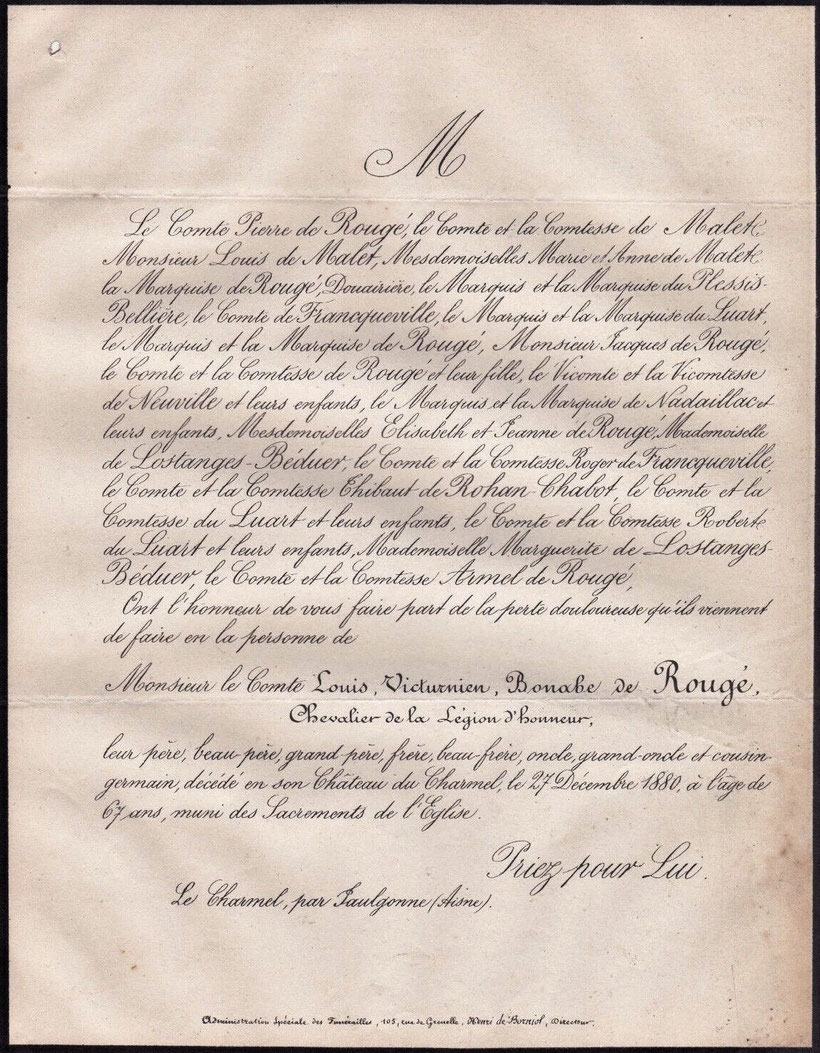 M
Le Comte Pierre de Rougé, le Comte et la Comtesse de Malet,
Monsieur Louis de Malet, Mesdemoiselles Marie et Anne de Malet,
la Marquise de Rougé, Douairière, le Marquis et la Marquise du Plessis-
Bellière, le Comte de Francqueville, le Marquis et la Marquise du Luart,
le Marquis et la Marquise de Rougé, Monsieur Jacques de Rougé,
le Comte et la Comtesse de Rougé et leur fille, le Vicomte et la Vicomtesse
de Neuville et leurs enfants, le Marquis et la Marquise de Nadaillac et
leurs enfants, Mesdemoiselles Elisabeth et Jeanne de Rougé, Mademoiselle
de Lostanges-Béduer, le Comte et la Comtesse Roger de Francqueville,
le Comte et la Comtesse Thibaut de Rohan-Chabot, le Comte et la
Comtesse du Luart et leurs enfants, le Comte et la Comtesse Robert
du Luart et leurs enfants, Mademoiselle Marguerite de Lostanges-
Béduer, le Comte et la Comtesse Armel de Rougé,
Ont l'honneur de vous faire part de la perte douloureuse qu'ils viennent
de faire en la personne de
Monsieur le Comte Louis, Victurnien, Bonabe de Rougé,
Chevalier de la Légion d'honneur,
leur père, beau-père, grand-père, frère, beau-frère, oncle, grand-oncle et cousin-
germain, décédé en son Château du Charmel, le 27 Décembre 1880, à l'âge de
67 ans, muni des Sacrements de l'Eglise.
Priez pour Lui.
Le Charmel, par Jaulgonne (Aisne).
Administration Spéciale des Funérailles, 105, rue de Grenelle, Henri de Borniol, Directeur.